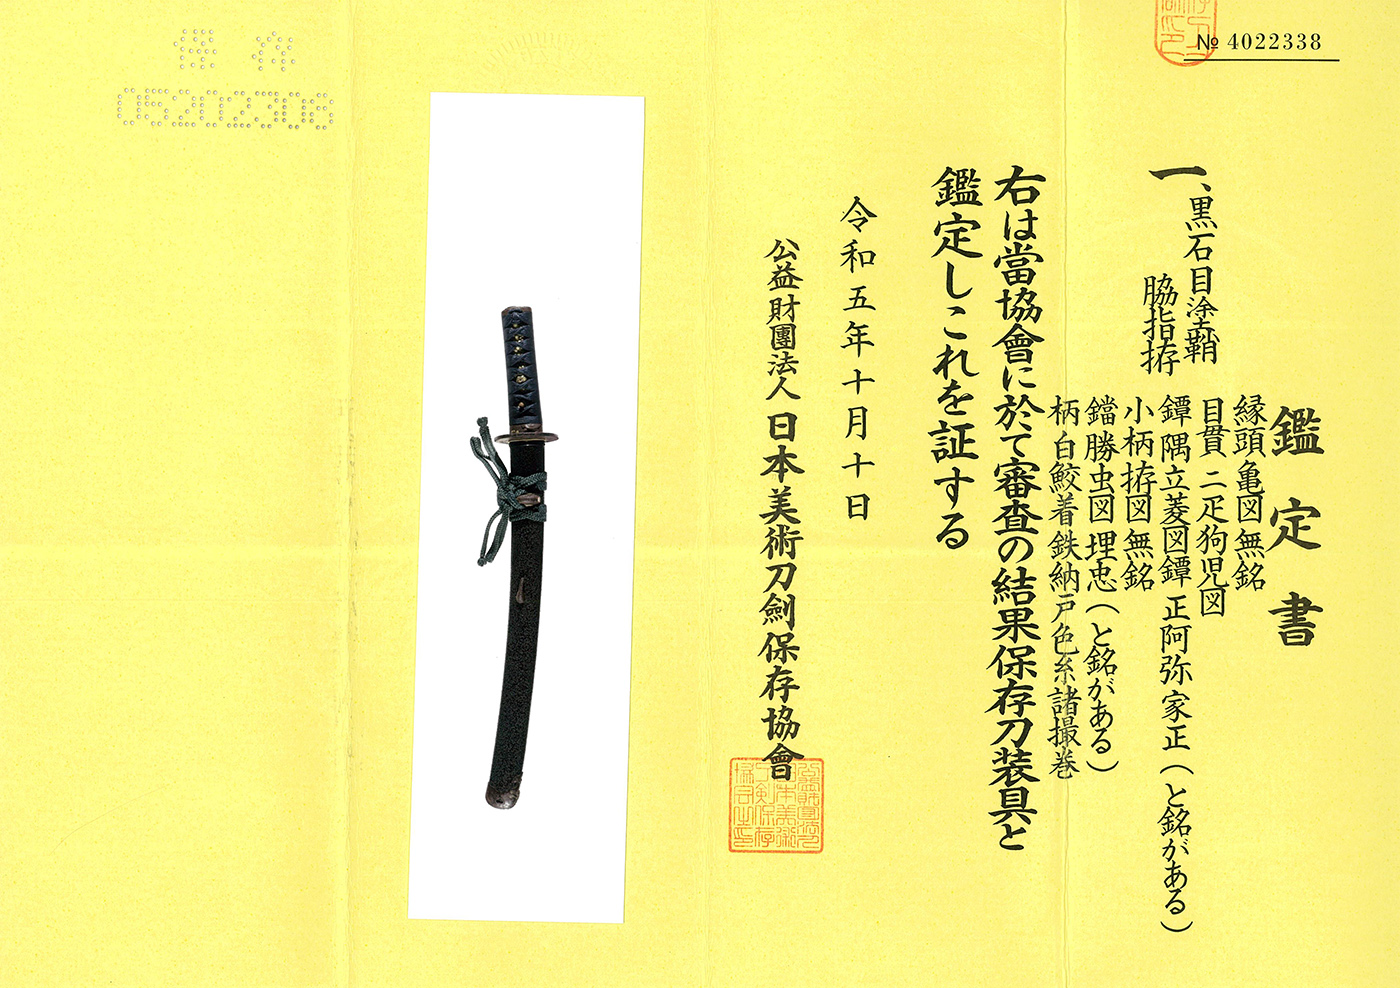 № 4022338
鑑定書
一、黒石目塗鞘
脇指拵
縁頭亀図無銘
目貫二疋狗児図
鐔隅立菱図鐔正阿弥家正(と銘がある)
小柄拵図無銘
鐺勝虫図埋忠(と銘がある)
柄白鮫着鉄納戸色糸諸撮巻
右は當協會に於て審査の結果保存刀装具と
鑑定しこれを証する
令和五年十月十日
公益財團法人日本美術刀劍保存協會
保存
05202308